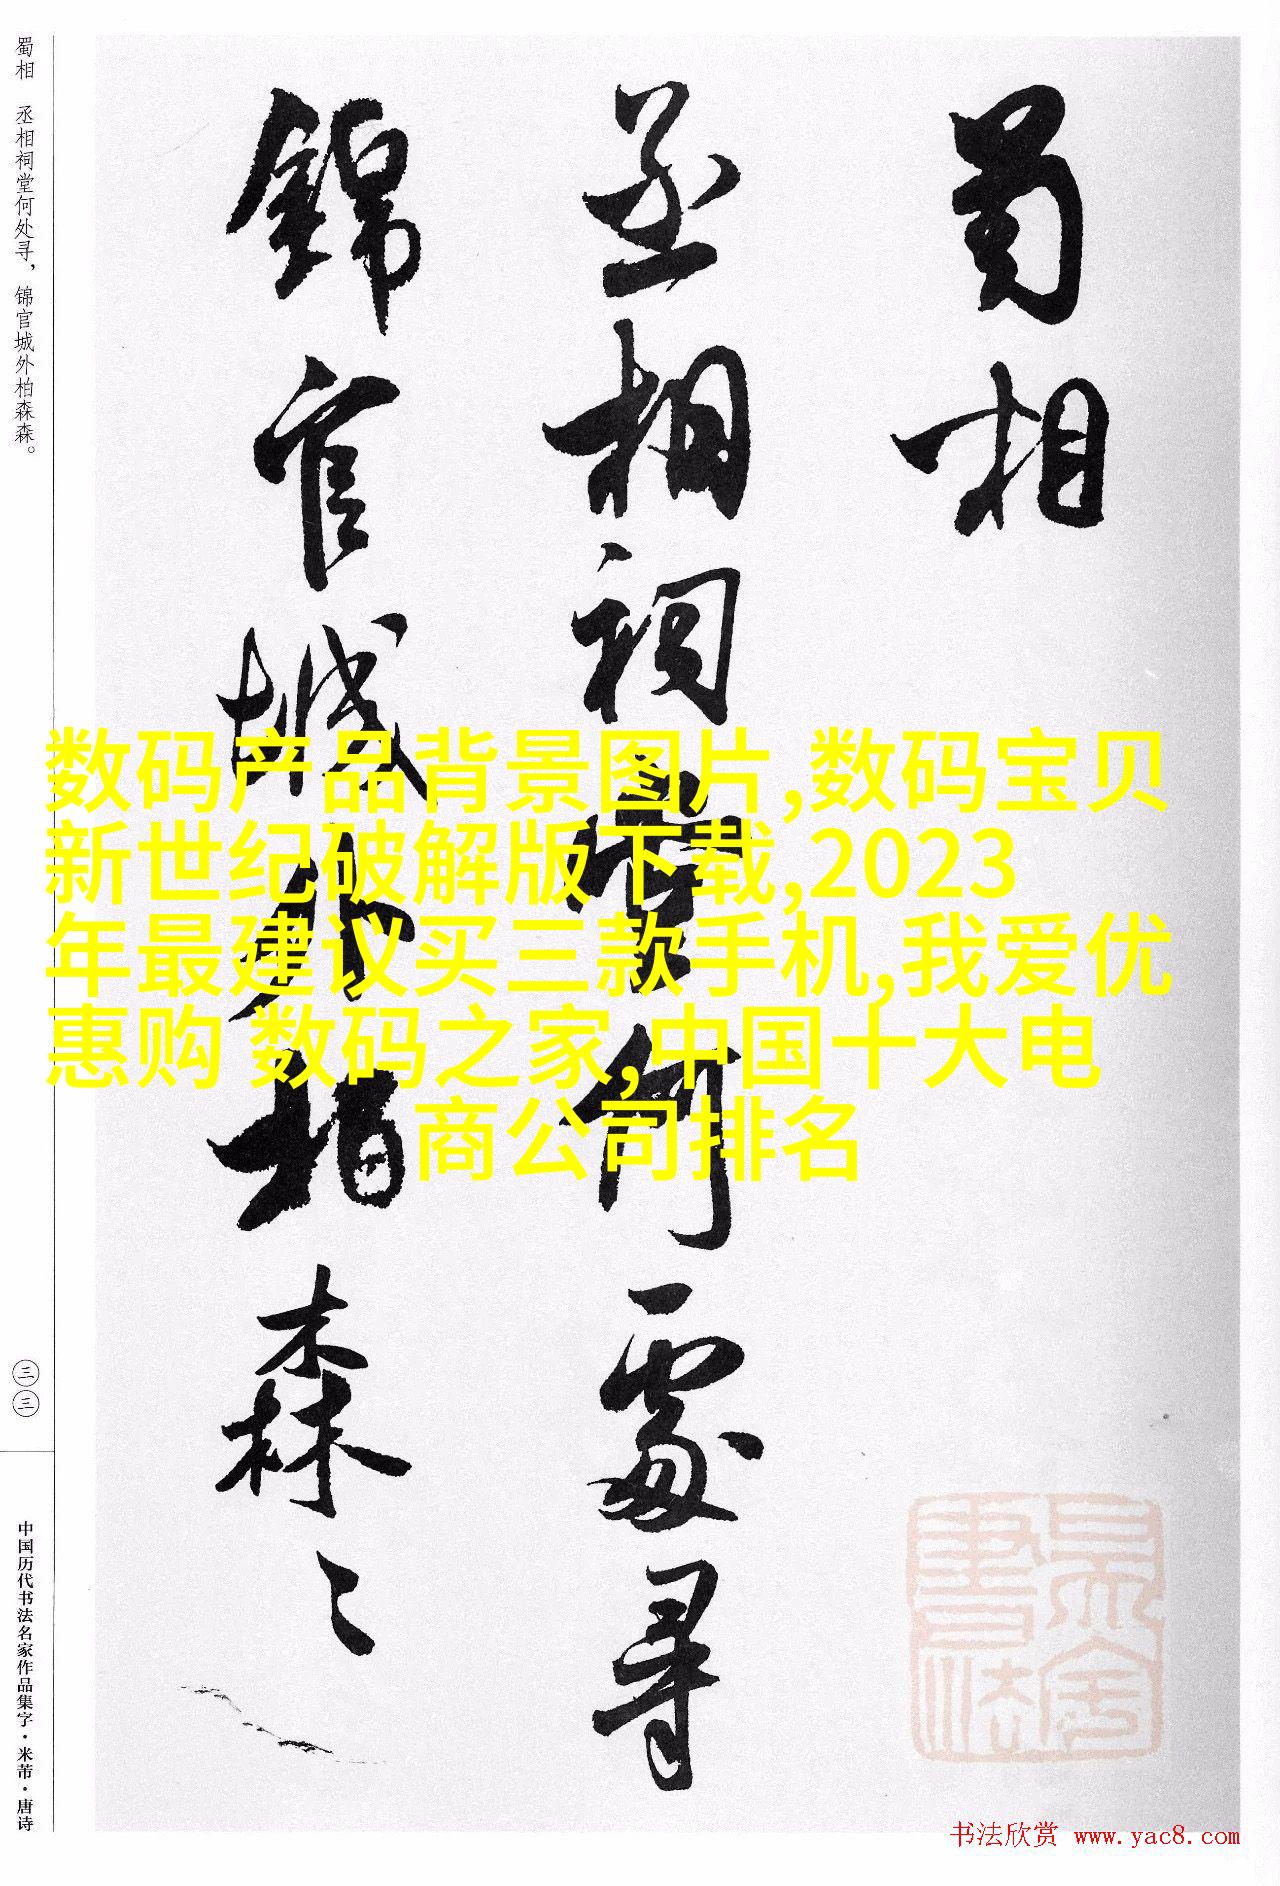 蜀相
丞相祠堂何處尋
錦官城外柏森〻
蜀相 丞相祠堂何处寻，锦官城外柏森森。
三三
中国历代书法名家作品集字·米芾·唐诗
数码产品背景图片,数码宝贝
新世纪破解版下载,2023
年最建议买三款手机,我爱优
惠购 数码之家,中国十大电
商公司排名
书法欣赏 www.yac8.com